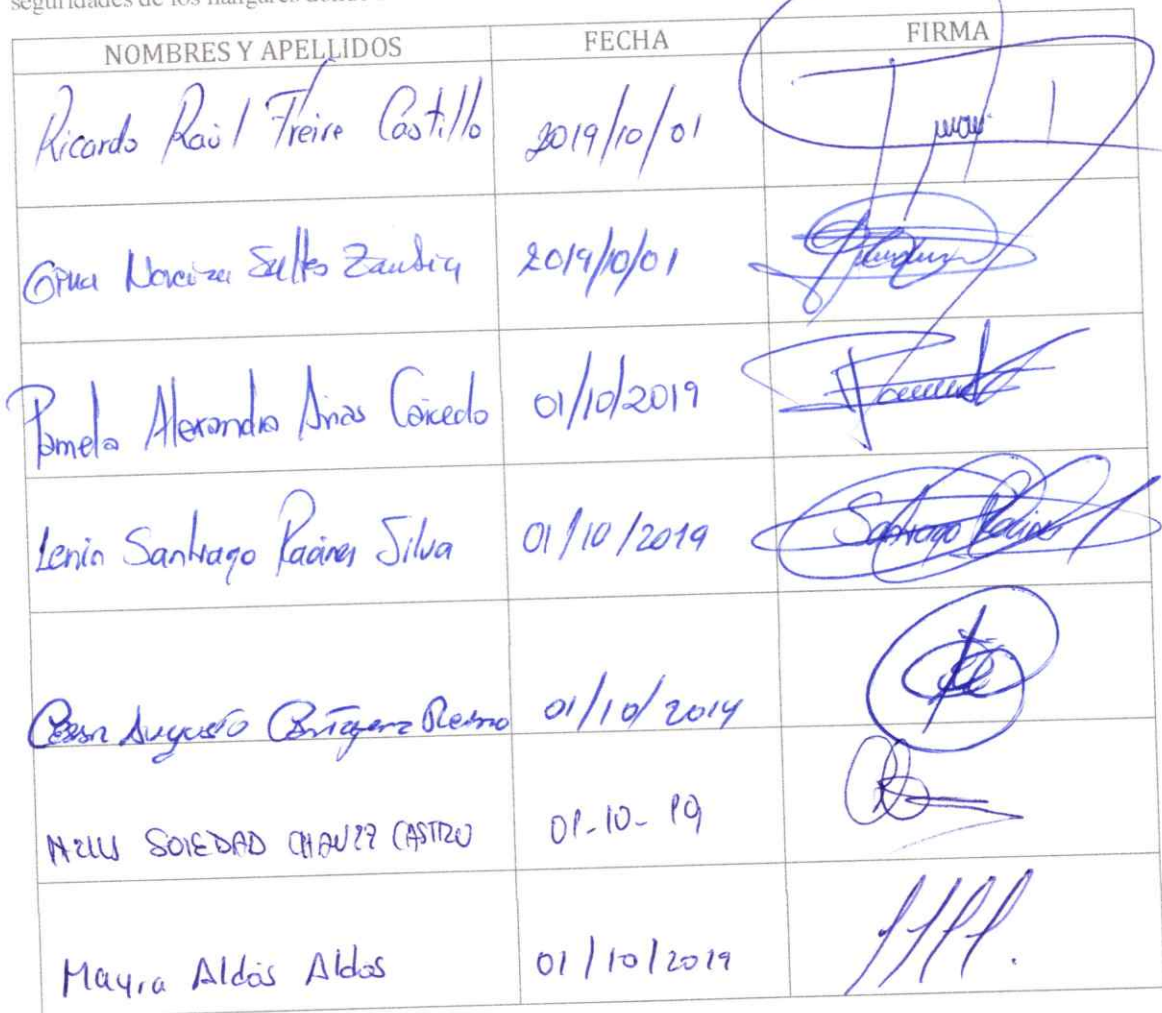 seguridades de los hangares donde
NOMBRES Y APELLIDOS FECHA FIRMA
Ricardo Raúl Freire Castillo 2019/10/01
Gina Narciza Saltos Zambia 2019/10/01
Pamela Alexandra Arias Caicedo 01/10/2019
Lenin Santiago Racines Silva 01/10/2019 Santiago Racines
Cesar Augusto Cartagena Reino 01/10/2019
SOLEDAD CHAVEZ CASTRO 01-10-19
Mayra Aldás Aldas 01/10/2019